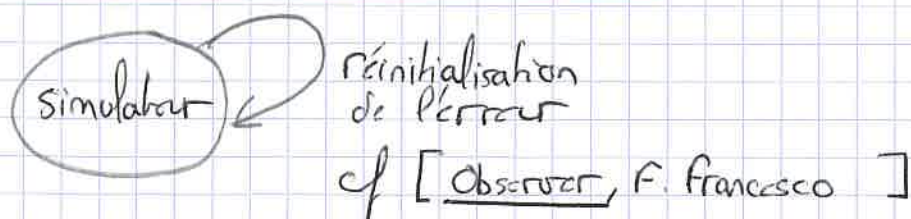 simulateur
réinitialisation
de l'erreur
cf [ Observer, F. Francesco ]